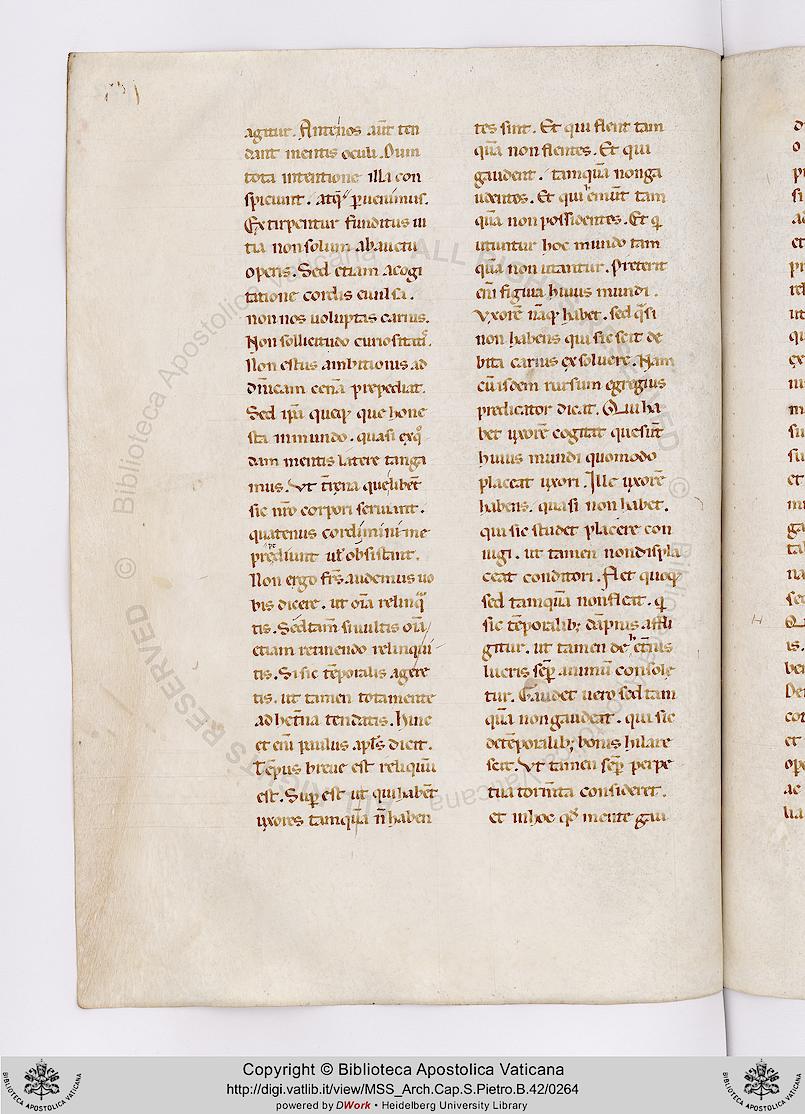 agitur. Anterios aut̄ ten
dant mentis oculi. Dum
tota intentione illa con
spiciunt. atq; ꝑuenimus.
Extirpentur funditus ui
tia non solum ab auctu
operis. Sed etiam a cogi
tatione cordis euulsa.
non nos uoluptas carnis.
Non sollicitudo curiositatis.
Non estus ambitionis ad
dn̄icam cenā prepediat.
Sed ip̄a queq; que hone
sta in mundo. quasi ex qͦ
dam mentis latere tanga
mus. Vt t̄rena que libēt
sic nr̄o corpori seruiant.
quatenus cordi minime
prepediunt ut obsistant.
Non ergo fr̄s audemus uo
bis dicere. ut om̄a relinq̄
tis. Sed tam̄ si uultis om̄a
etiam retinendo relinqui
tis. Si sic tēporalia agere
tis. ut tamen tota mente
ad het̄na tendatis. Hinc
et eni paulus apl̄s dicit.
Tēpus breue est reliquū
est. Suꝑ est ut qui habēt
uxores tamquā n̄ haben
tes sint. Et qui flent tam
quā non flentes. Et qui
gaudent. tamquā non ga
udentes. Et qui emūt tam
quā non possidentes. Et q
utuntur hoc mundo tam
quā non utantur. Preterit
eni figura huius mundi.
Vxorē nāq; habet. sed qͣsi
non habens qui sic scit de
bita carnis exsoluere. Nam
cū isdem rursum egregius
predicator dicat. Qui ha
bet uxorē cogitat que sūt
huius mundi quomodo
placeat uxori. Ille uxorē
habens. quasi non habet.
qui sic studet placere con
iugi. ut tamen non displa
ceat conditori. Flet quoq;
sed tamquā non fleat. q
sic tēporalib; dāpnis affli
gitur. ut tamen de et̄nis
lucris semꝑ animū console
tur. Gaudet uero sed tam
quā non gaudeat. qui sic
de tēporalib; bonis hilare
scit. Vt tamen semꝑ perpe
tua torm̄ta consideret.
et in hoc qd̄ mente gau
© Biblioteca Apostolica Vaticana ALL RIGHTS RESERVED
Copyright © Biblioteca Apostolica Vaticana
http://digi.vatlib.it/view/MSS_Arch.Cap.S.Pietro.B.42/0264
powered by DWork • Heidelberg University Library